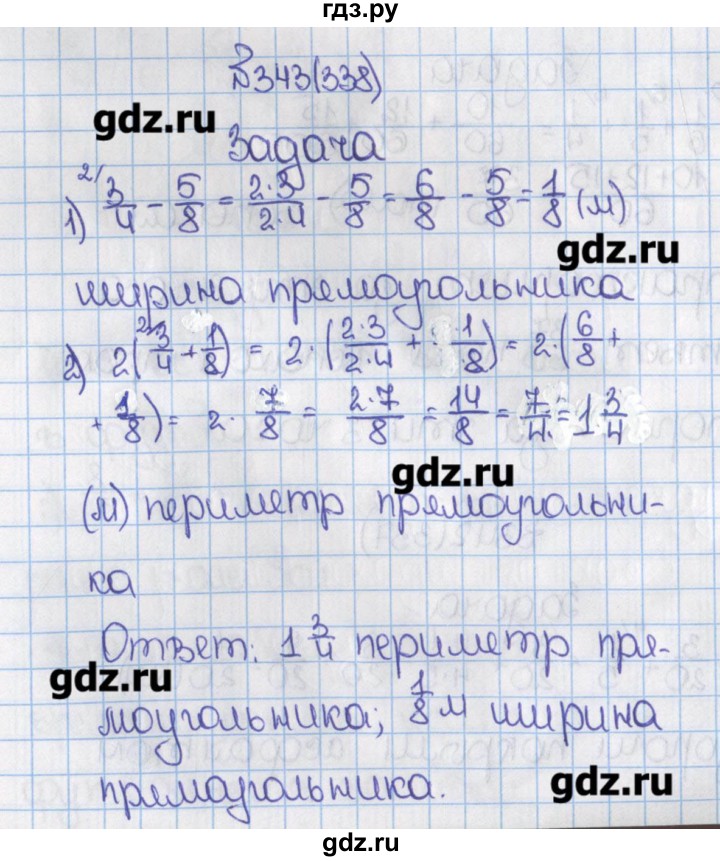 гдз.ру
№343(338)
gdz.ru
Задача
1) ²⁄ 3/4 - 5/8 = 2·3/2·4 - 5/8 = 6/8 - 5/8 = 1/8 (м)
gdz.ru
ширина прямоугольника
2) 2(²⁄ 3/4 + 1/8) = 2·(2·3/2·4 + 1/8) = 2·(6/8 +
+ 1/8) = 2· 7/8 = 2·7/8 = 14/8 = 7/4 = 1 3/4
gdz.ru
(м) периметр прямоугольни-
ка
Ответ: 1 3/4 периметр пря-
gdz.ru
моугольника; 1/8 м ширина
прямоугольника.
gdz.ru
gdz.ru